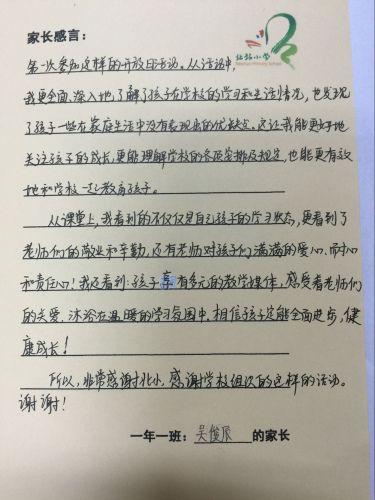 家长感言：
第一次参加这样的开放日活动。从活动中，
我更全面、深入地了解了孩子在学校的学习和生活情况，也发现
了孩子一些在家庭生活中没有表现出的优缺点。这让我能更好地
关注孩子的成长，更能理解学校的各项安排及规定，也能更有效
地和学校一起教育孩子。
从课堂上，我看到的不仅仅是自己孩子的学习状态，更看到了
老师们的敬业和辛勤，还有老师对孩子们满满的爱心、耐心
和责任心！我还看到：孩子享有多元的教学媒体，感受着老师们
的关爱，沐浴在温暖的学习氛围中，相信孩子定能全面进步，健
康成长！
所以，非常感谢北小，感谢学校组织的这样的活动。
谢谢！
一年一班：吴俊辰 的家长